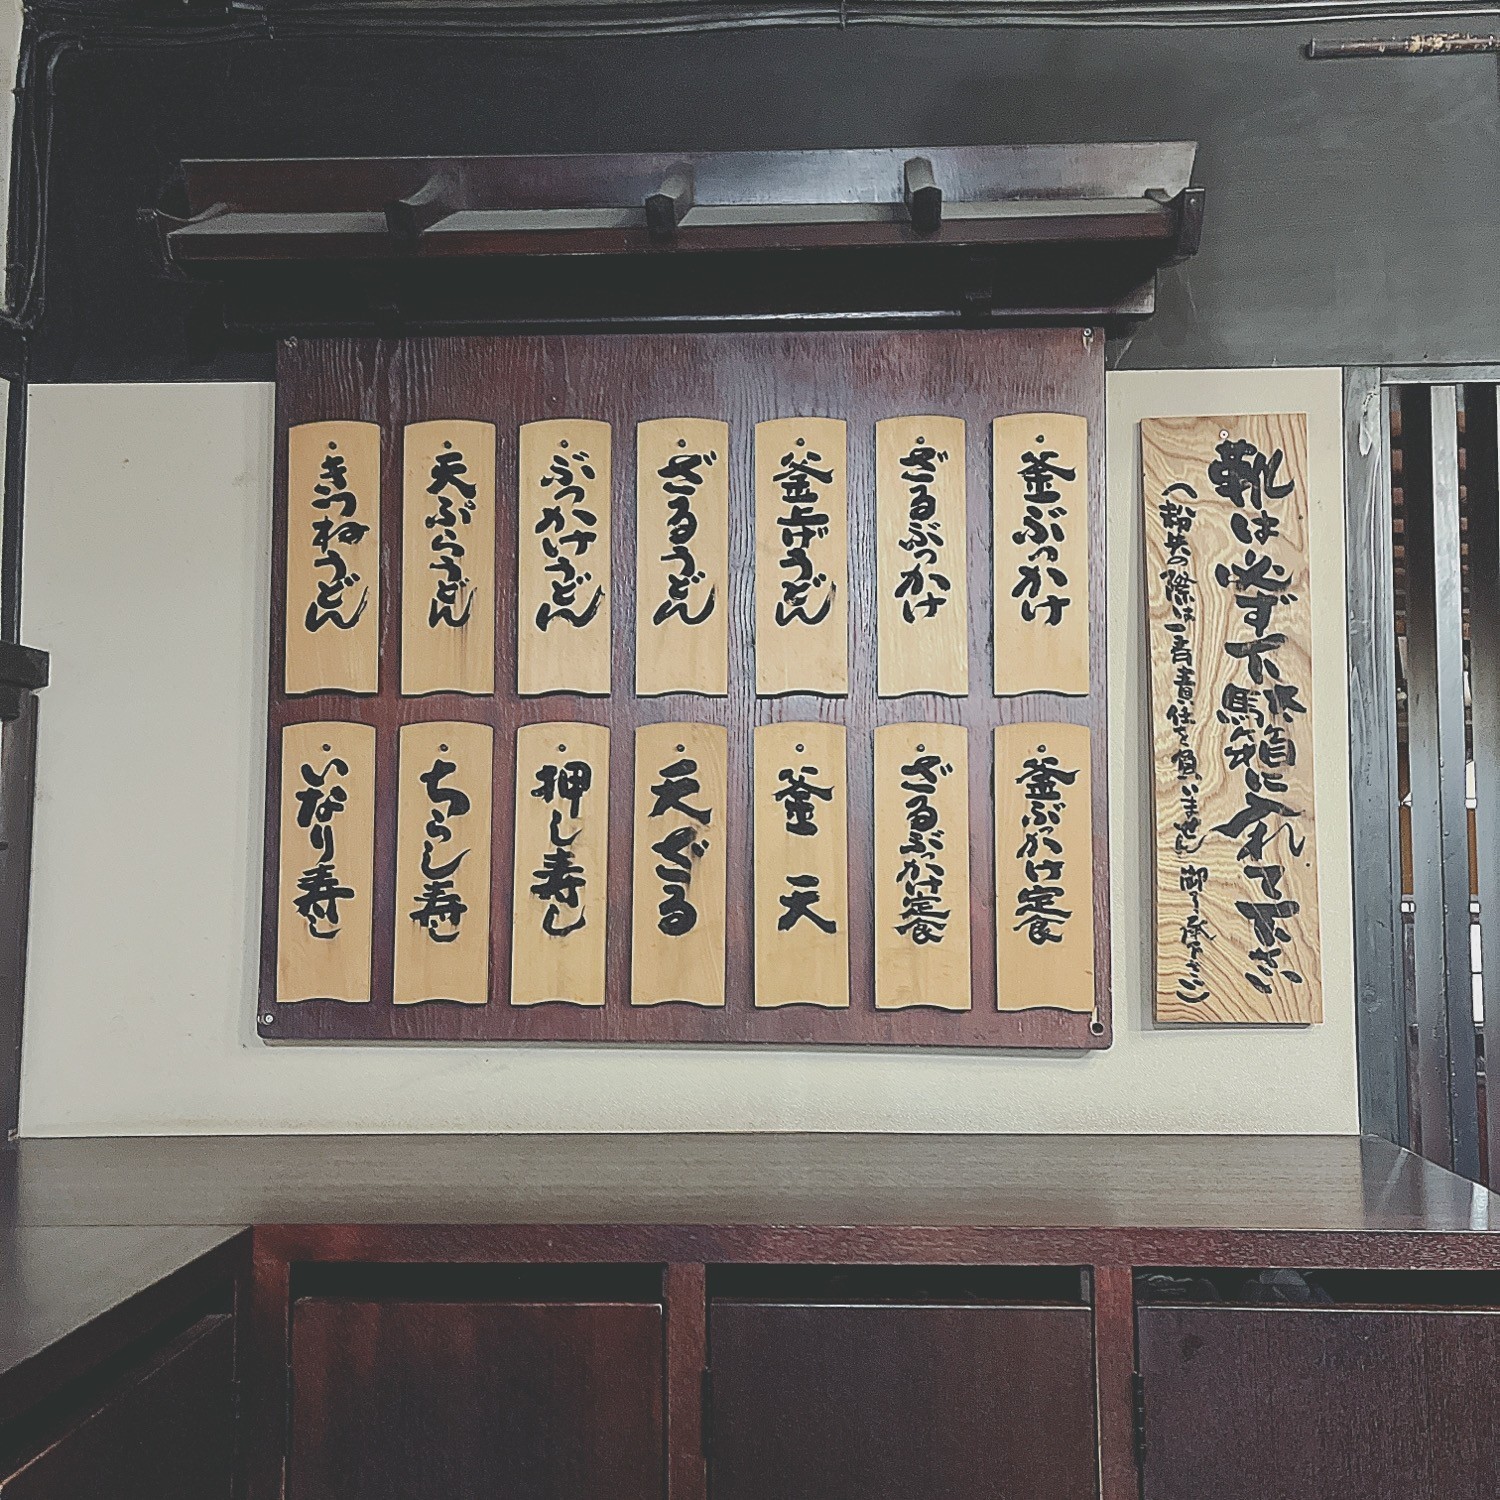 靴は必ず下駄箱に入れて下さい
(紛失の際は一斉責任を負いません 御了承下さい)
釜ぶっかけ
ざるぶっかけ
釜上げうどん
ざるうどん
ぶっかけうどん
天ぷらうどん
きつねうどん
釜ぶっかけ定食
ざるぶっかけ定食
釜天
天ざる
押し寿し
ちらし寿し
いなり寿し